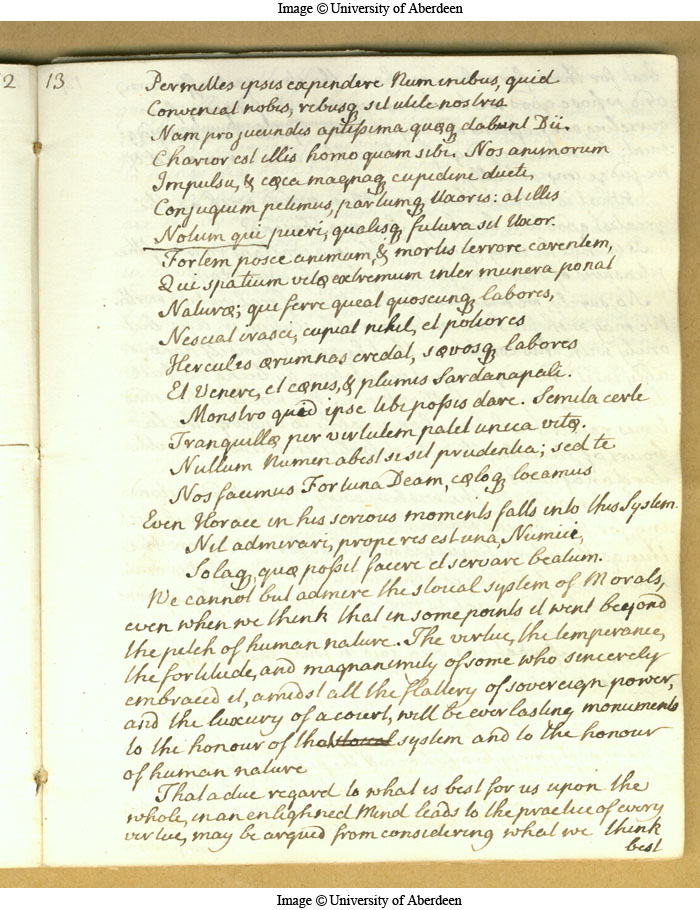 Image © University of Aberdeen
2
13
Permittes ipsis expendere Numinibus, quid
Conveniat nobis, rebusq sit utile nostris.
Nam pro jucundis aptissima quæq dabunt Dii.
Charior est illis homo quam sibi. Nos animorum
Impulsu, & cæca magnaq cupidine ducti,
Conjugium petimus, partumq Uxoris: at illis
Notum qui pueri, qualisq futura sit Uxor.
Fortem posce animum, & mortis terrore carentem,
Qui spatium vitæ extremum inter munera ponat
Naturæ; qui ferre queat quoscunq labores,
Nesciat irasci, cupiat nihil, et potiores
Herculis ærumnas credat, sævosq labores
Et Venere, et cænis, & plumis Sardanapali.
Monstro quod ipse tibi possis dare. Semita certe
Tranquillæ per virtutem patet unica vitæ.
Nullum Numen abest si sit prudentia; sed te
Nos facimus Fortuna Deam, cæloq locamus
Even Horace in his serious moments falls into this System.
Nil admirari, prope res est una, Numici,
Solaq, quæ possit facere et servare beatum.
We cannot but admire the stoical system of Morals,
even when we think that in some points it went beyond
the pitch of human nature. The virtue, the temperance,
the fortitude, and magnanimity of some who sincerely
embraced it, amidst all the flattery of sovereign power,
and the luxury of a court, will be everlasting monuments
to the honour of that system and to the honour
of human nature
That a due regard to what is best for us upon the
whole, in an enlighned Mind leads to the practice of every
virtue, may be argued from considering what we think
best
Image © University of Aberdeen